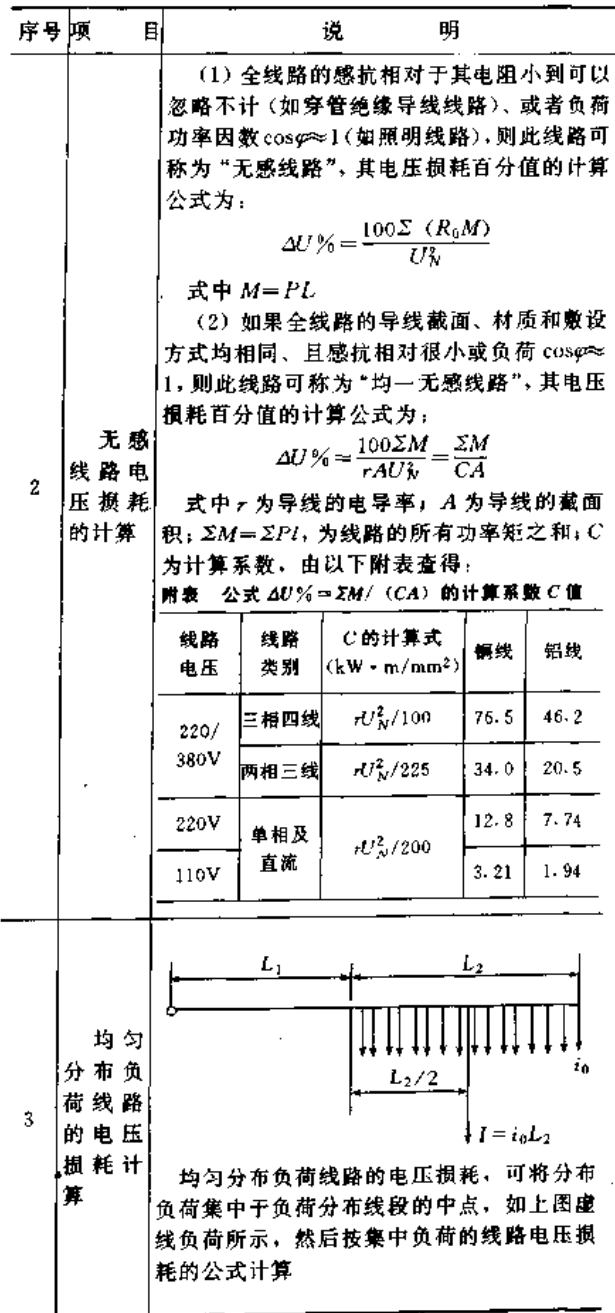 序号 项 目 说 明
(1) 全线路的感抗相对于其电阻小到可以
忽略不计(如穿管绝缘导线线路)、或者负荷
功率因数cosφ≈1(如照明线路),则此线路可
称为“无感线路”,其电压损耗百分值的计算
公式为:
ΔU%=100Σ (R₀M)/U²N
式中 M=PL
(2) 如果全线路的导线截面、材质和敷设
方式均相同、且感抗相对很小或负荷 cosφ≈
1,则此线路可称为“均一无感线路”,其电压
损耗百分值的计算公式为:
ΔU%=100ΣM/rAU²N=ΣM/CA
式中 r 为导线的电导率;A 为导线的截面
积;ΣM=ΣPl,为线路的所有功率矩之和;C
为计算系数,由以下附表查得:
2
无感
线路电
压损耗
的计算
附表 公式 ΔU%=ΣM/(CA) 的计算系数 C 值
线路电压 线路类别 C的计算式(kW·m/mm²) 铜线 铝线
220/380V 三相四线 rU²N/100 76.5 46.2
两相三线 rU²N/225 34.0 20.5
220V 单相及直流 rU²N/200 12.8 7.74
110V 3.21 1.94
3
均匀
分布负
荷线路
的电压
损耗计
算
L₁ L₂
i₀
L₂/2
I=i₀L₂
均匀分布负荷线路的电压损耗,可将分布
负荷集中于负荷分布线段的中点,如上图虚
线负荷所示,然后按集中负荷的线路电压损
耗的公式计算